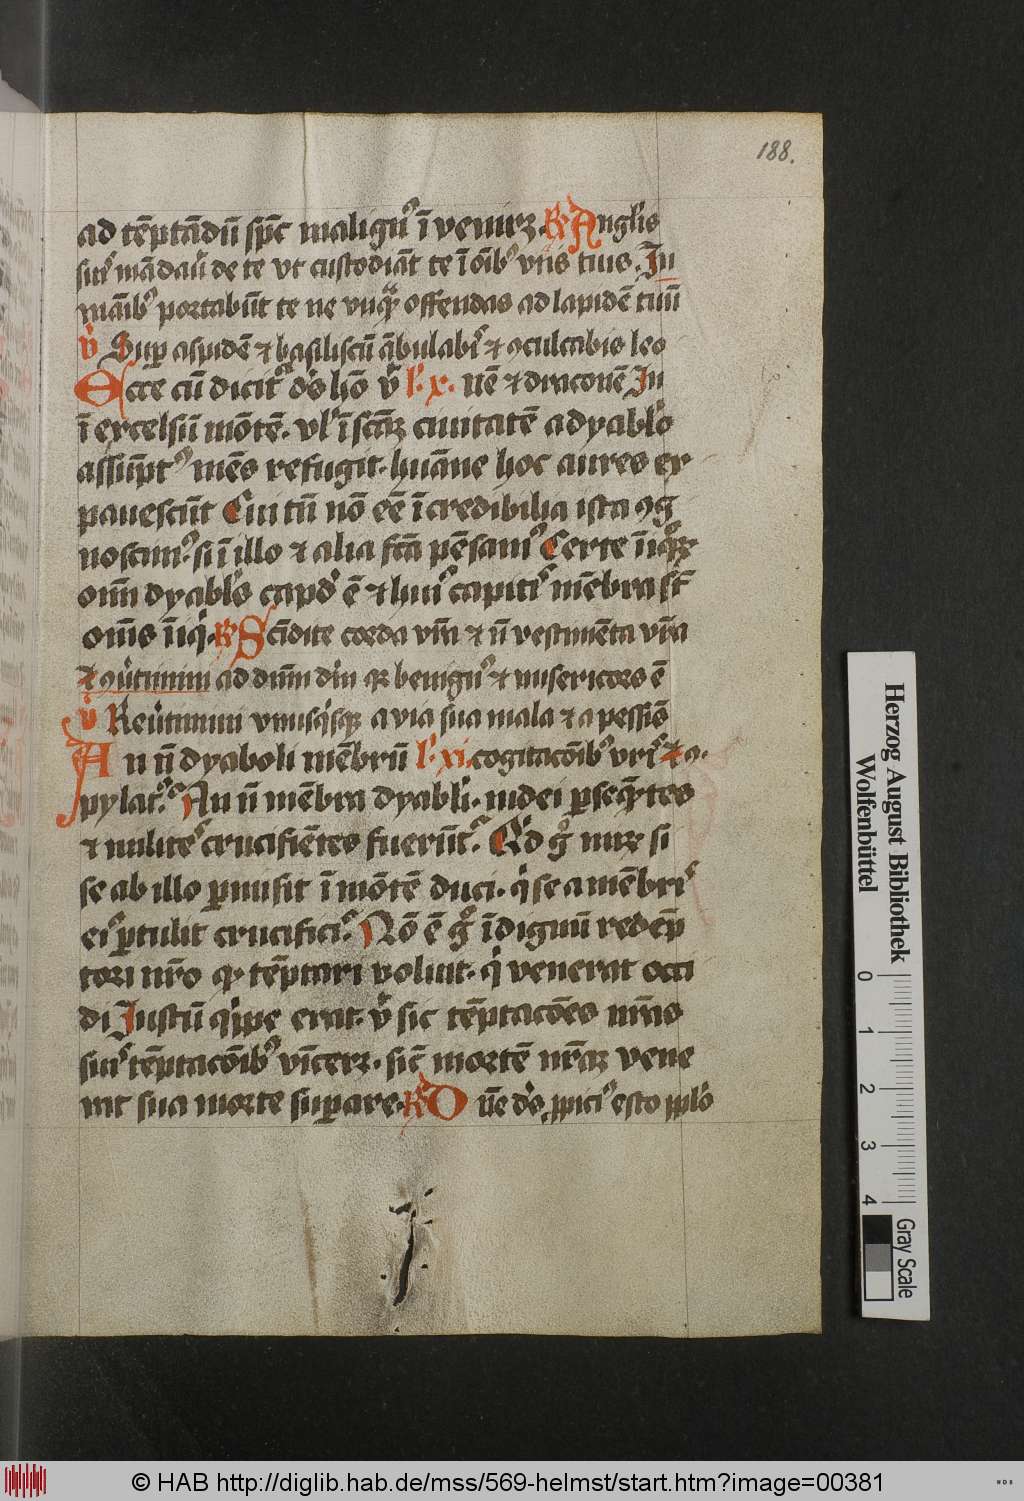 188.
ad tēptādū spc̄ malign⁹ īvenirꝫ. R̷ Angl'is
suis mādauit de te vt custodiāt te ī oīb⁹ vijs tuis. In
māib⁹ portabūt te ne vnqꝫ offendas ad lapidē tuū
v̊ Sup̱ aspidē ⁊ basiliscū ābulabis ⁊ ꝯculcabis leo
Ecce cū dicit d̓s hō v̓ l. x. nē ⁊ draconē In
ī excelsū mōtē. vl' ī scām ciuitatē a dyabl'o
assūpt⁹ mēs refugit. hūane hoc aures ex
pauescūt Cui tn̄ nō eē īcredibilia ista ꝯg
noscim⁹. si ī illo ⁊ alia fc̄a pēsam⁹ Certe īiqꝝ
oīm dyabl'o capd̓ ē ⁊ hui⁹ capitis mēbra st̄
om̄s īiqi. R̷ Scīdite corda vr̄a ⁊ n̄ vestimēta vr̄a
⁊ ꝯu'timini ad dn̄m dm̄ qꝛ benign⁹ ⁊ misericors ē
v̊ Reu'timini vnusqisqꝫ a via sua mala ⁊ a pessīs
An n̄ dyaboli mēbrū l. xi. cogitacōib⁹ vr̄is ⁊ a.
pylat⁹ An n̄ mēbra dyabl'i. iudei ꝑseqētes
⁊ milites crucifiētes fuerūt. Qd̓ gͦ mirꝫ si
se ab illo ꝑmisit ī mōtē duci. qi se a mēbris
ei⁹ ꝑtulit crucifici. Nō ē gͦ īdignū redēp
tori nr̄o qꝫ tēptari voluit. qi venerat occi
di Iustū qippe erat. vt sic tēptacōes nr̄as
suis tēptacōib⁹ vīcerꝫ. sic̄ mortē nr̄aꝫ vene
rat sua morte suꝑare. R̷ Dn̄e d̓s ꝓpici⁹ esto ppl'o
Herzog August Bibliothek
Wolfenbüttel
0 1 2 3 4
Gray Scale
© HAB http://diglib.hab.de/mss/569-helmst/start.htm?image=00381